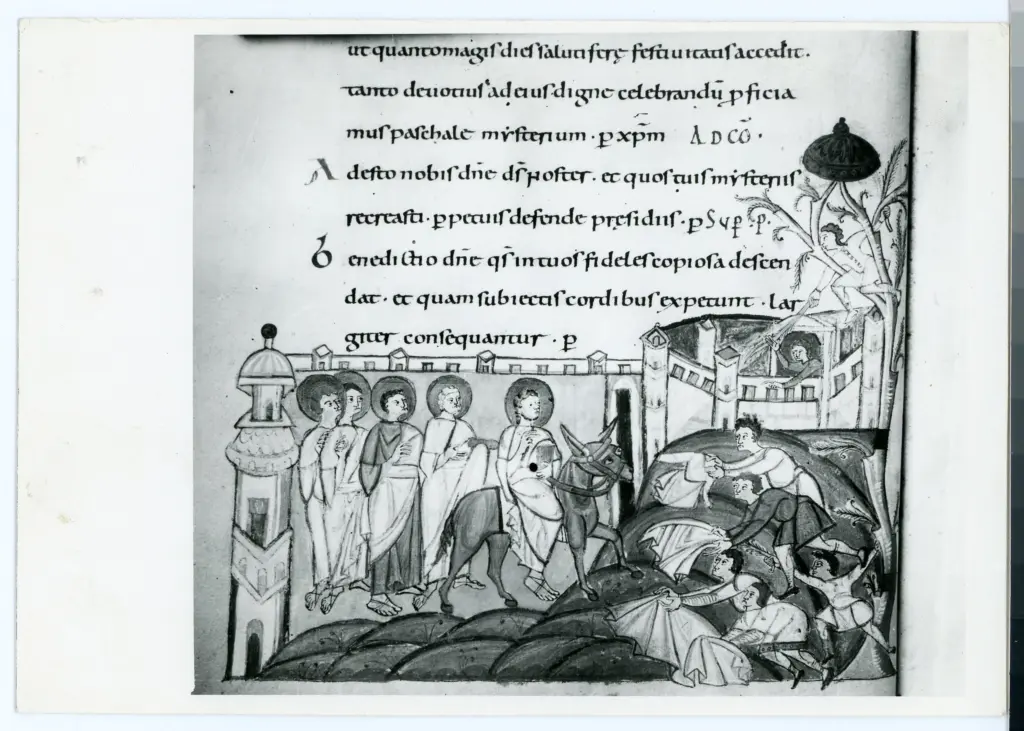 ut quantomagis dies salutiferę festiuitatis accedit.
tanto deuotius ad eius digne celebrandū ꝑficia
mus paschale mysterium · ꝑ xp̄m AD CŌ ·
Adesto nobis dn̄e ds̄ noster. et quos tuis mysteriis
recreasti · ꝑpetuis defende pręsidiis · ꝑ Suꝑ · p̄ ·
Benedictio dn̄e qs̄ in tuos fideles copiosa descen
dat · et quam subiectis cordibus expetunt · lar
giter consequantur · ꝑ